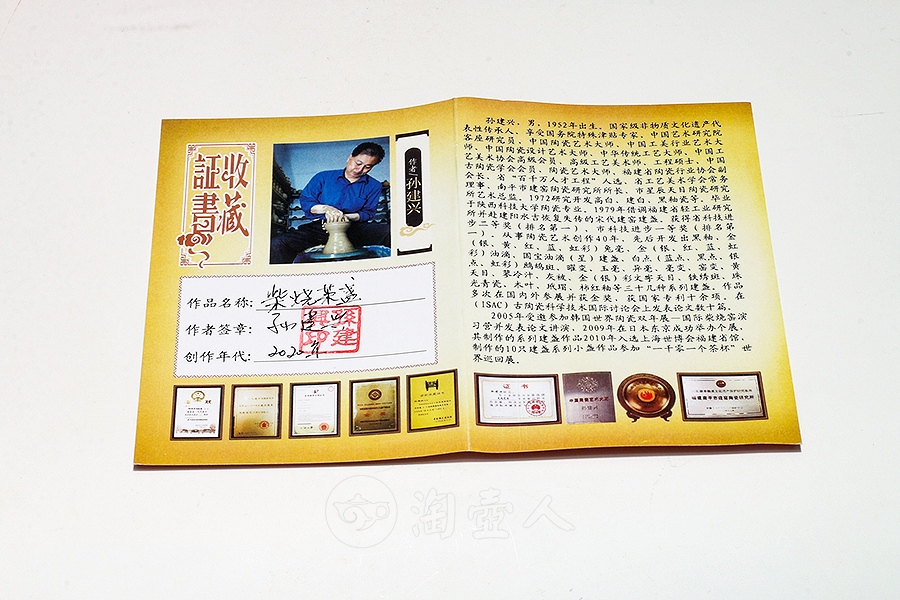 收藏
証書
作者
孙建兴
作品名称:
柴烧茶盏
作者签章:
孙建兴
创作年代:
2020年
孙建兴，男，1952年出生。国家级非物质文化遗产代
表性传承人、享受国务院特殊津贴专家、中国艺术研究院
客座研究员、中国陶瓷艺术大师、中国工美行业艺术大
师、中国陶瓷设计艺术大师、中华传统工艺大师、中国工
艺美术协会高级会员、高级工艺美术师、工程硕士、中国
古陶瓷学会会员、陶瓷艺术大师、福建省陶瓷行业协会副
会长、省“百千万人才工程”人选、省工艺美术学会常务
理事、南平市建窑陶瓷研究所所长、市星辰天目陶瓷研究
所艺术总监。1972研究开发高白、建白、黑釉瓷等，毕业
于陕西科技大学陶瓷专业。1979年借调福建省轻工业研究
所并赴建阳水吉恢复失传的宋代建窑建盏，获得省科技进
步二等奖（排名第一）、市科技进步一等奖（排名第
一）。从事陶瓷艺术创作40年，先后开发出黑釉、金
（银、黄、红、蓝、虹彩）兔毫、金（银、红、蓝、虹
彩）油滴、国宝油滴（星）建盏、白点（蓝点、黑点、银
点、虹彩）鹧鸪斑、曜变、玉毫、异毫、毫变、窑变、黄
天目、翠冷汁、灰被、金（银）彩文字天目、铁绣斑、珠
光青瓷、木叶、玳瑁、柿红釉等三十几种系列建盏。作品
多次在国内外参展并获金奖，获国家专利十余项，在
（ISAC）古陶瓷科学技术国际讨论会上发表论文数十篇。
2005年受邀参加韩国世界陶瓷双年展—国际柴烧窑演
习营并发表论文讲演。2009年在日本东京成功举办个展。
其制作的系列建盏作品2010年入选上海世博会福建省馆，
制作的10只建盏系列小盏作品参加“一千零一个茶杯”世
界巡回展。
证书
中国陶瓷艺术大师
淘壶人